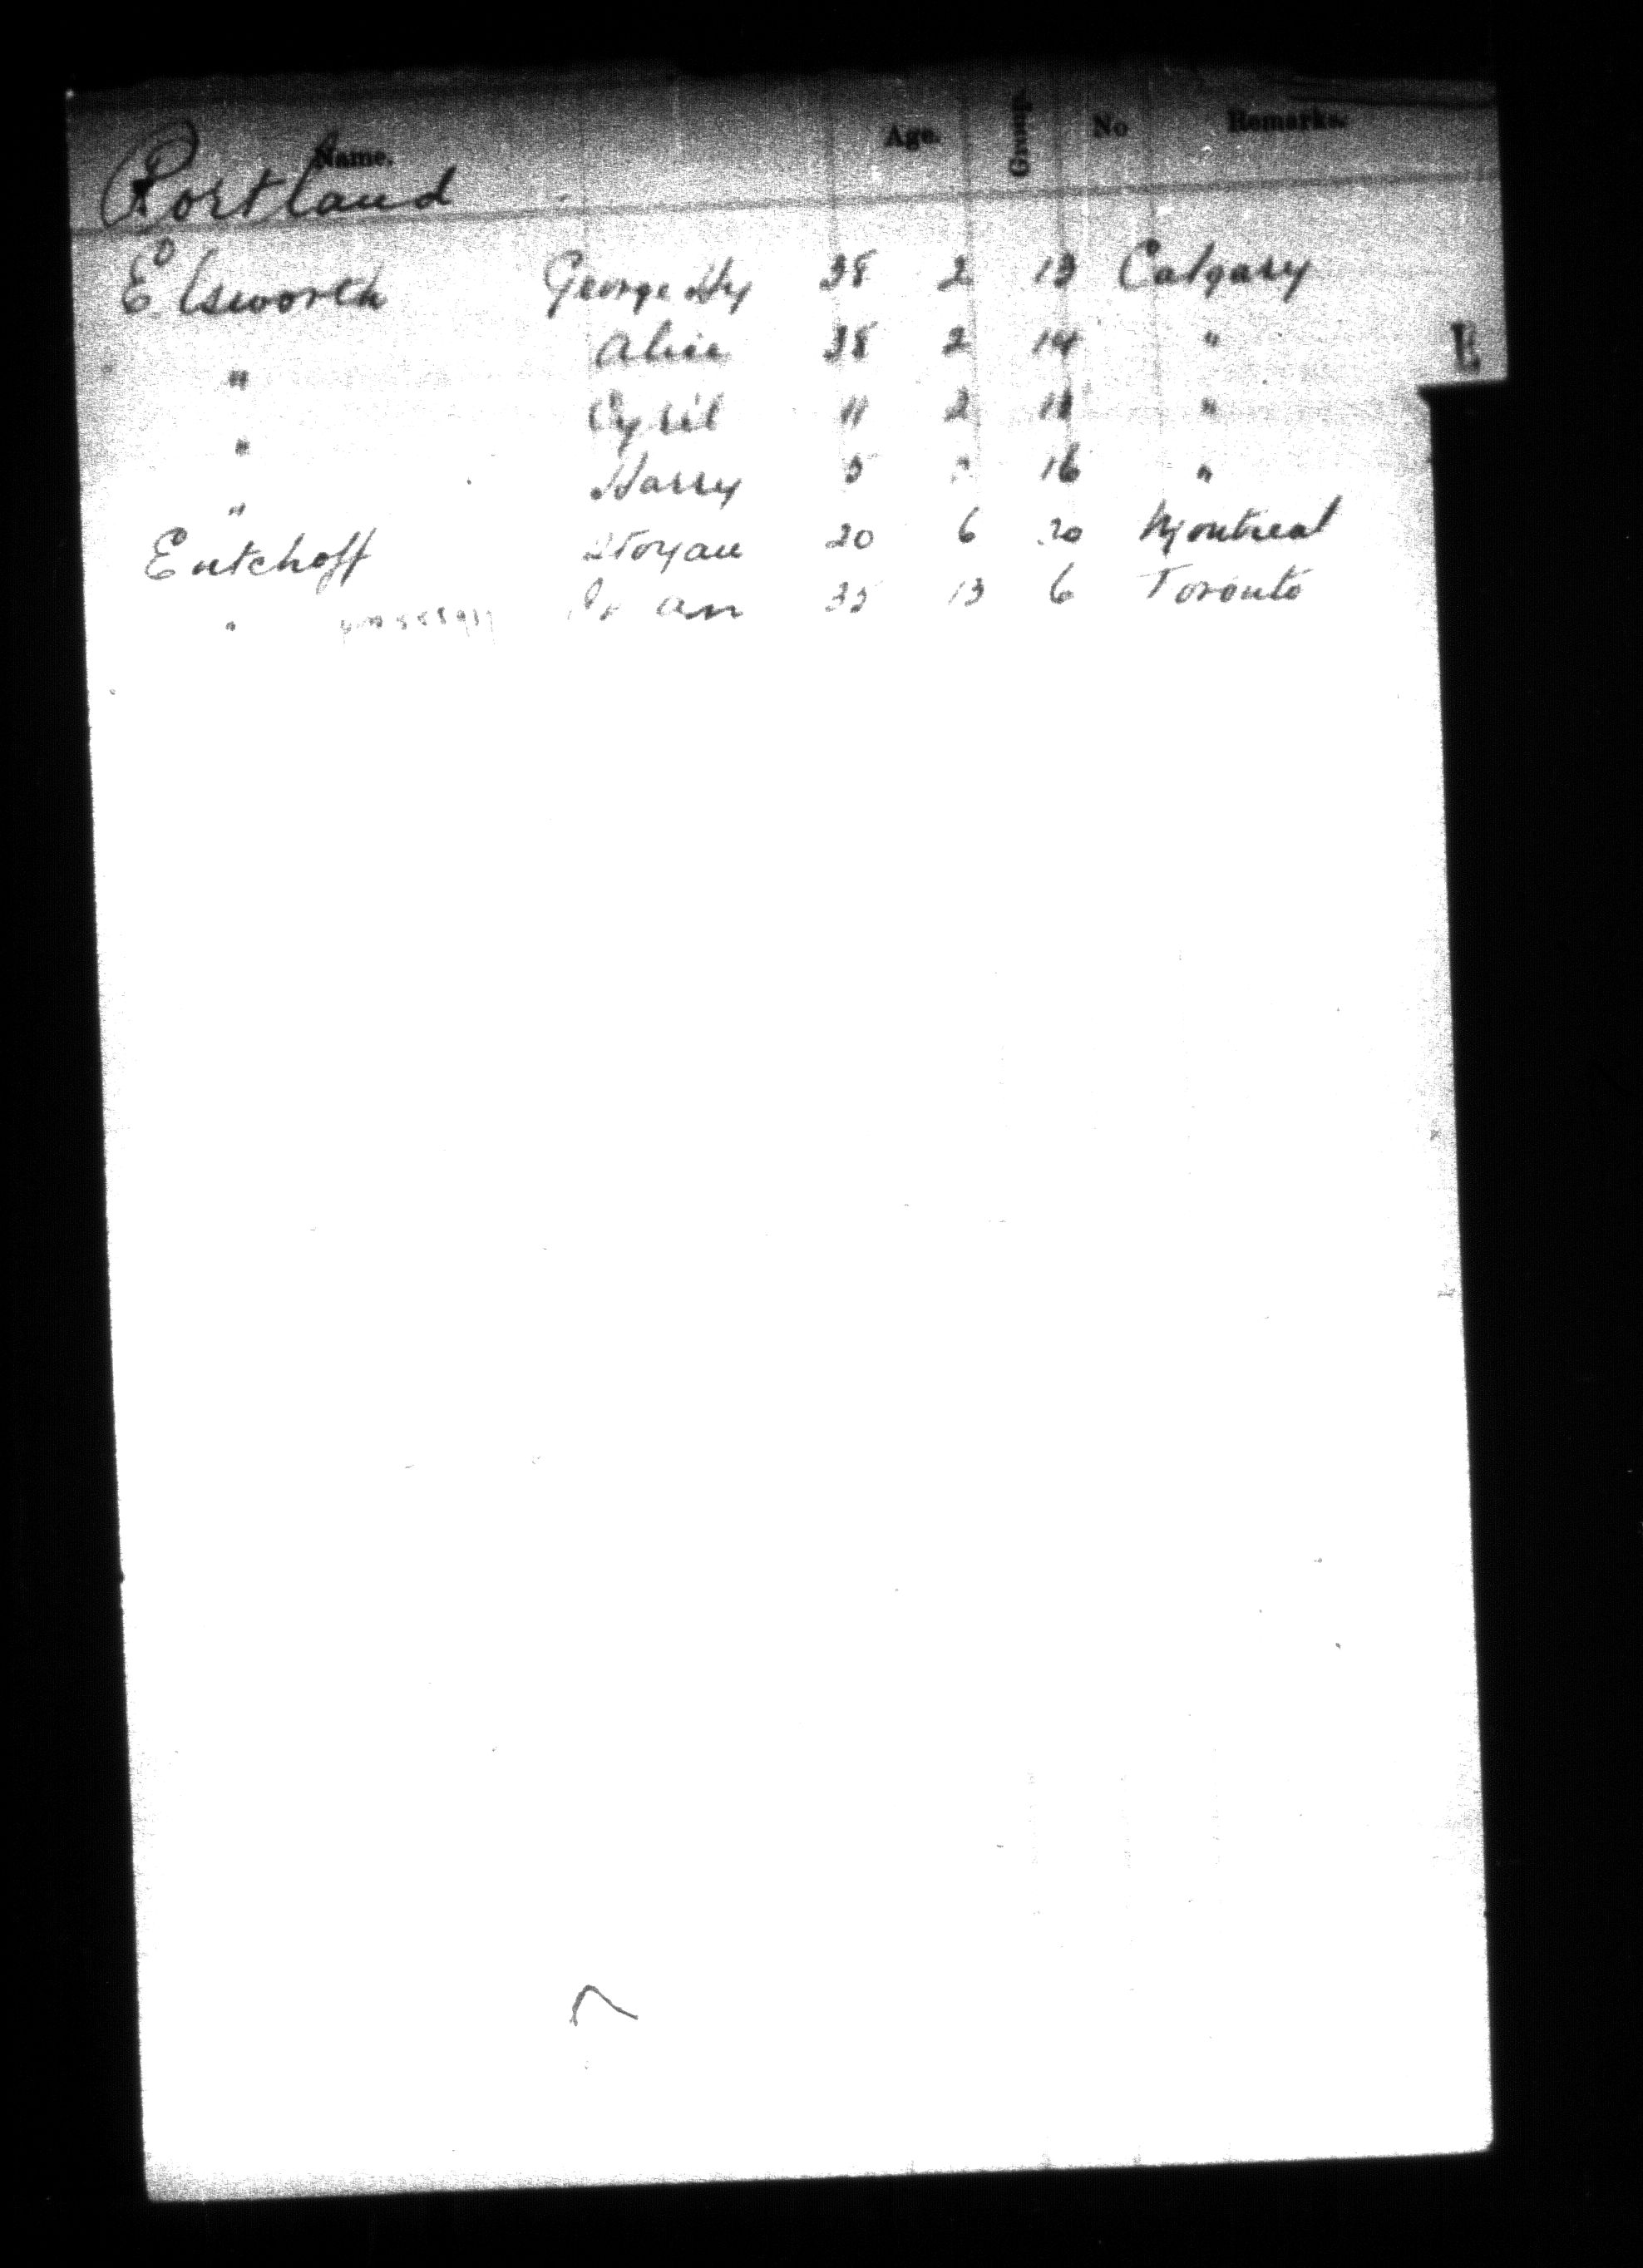 Name. Age. Group. No Remarks.
Portland
Elsworth George Hy 38 2 13 Calgary
" Alice 38 2 14 "
" Cyril 11 2 "
" Harry 5 16 "
Entchoff Stoyan 20 6 20 Montreal
" 35 13 6 Toronto
E